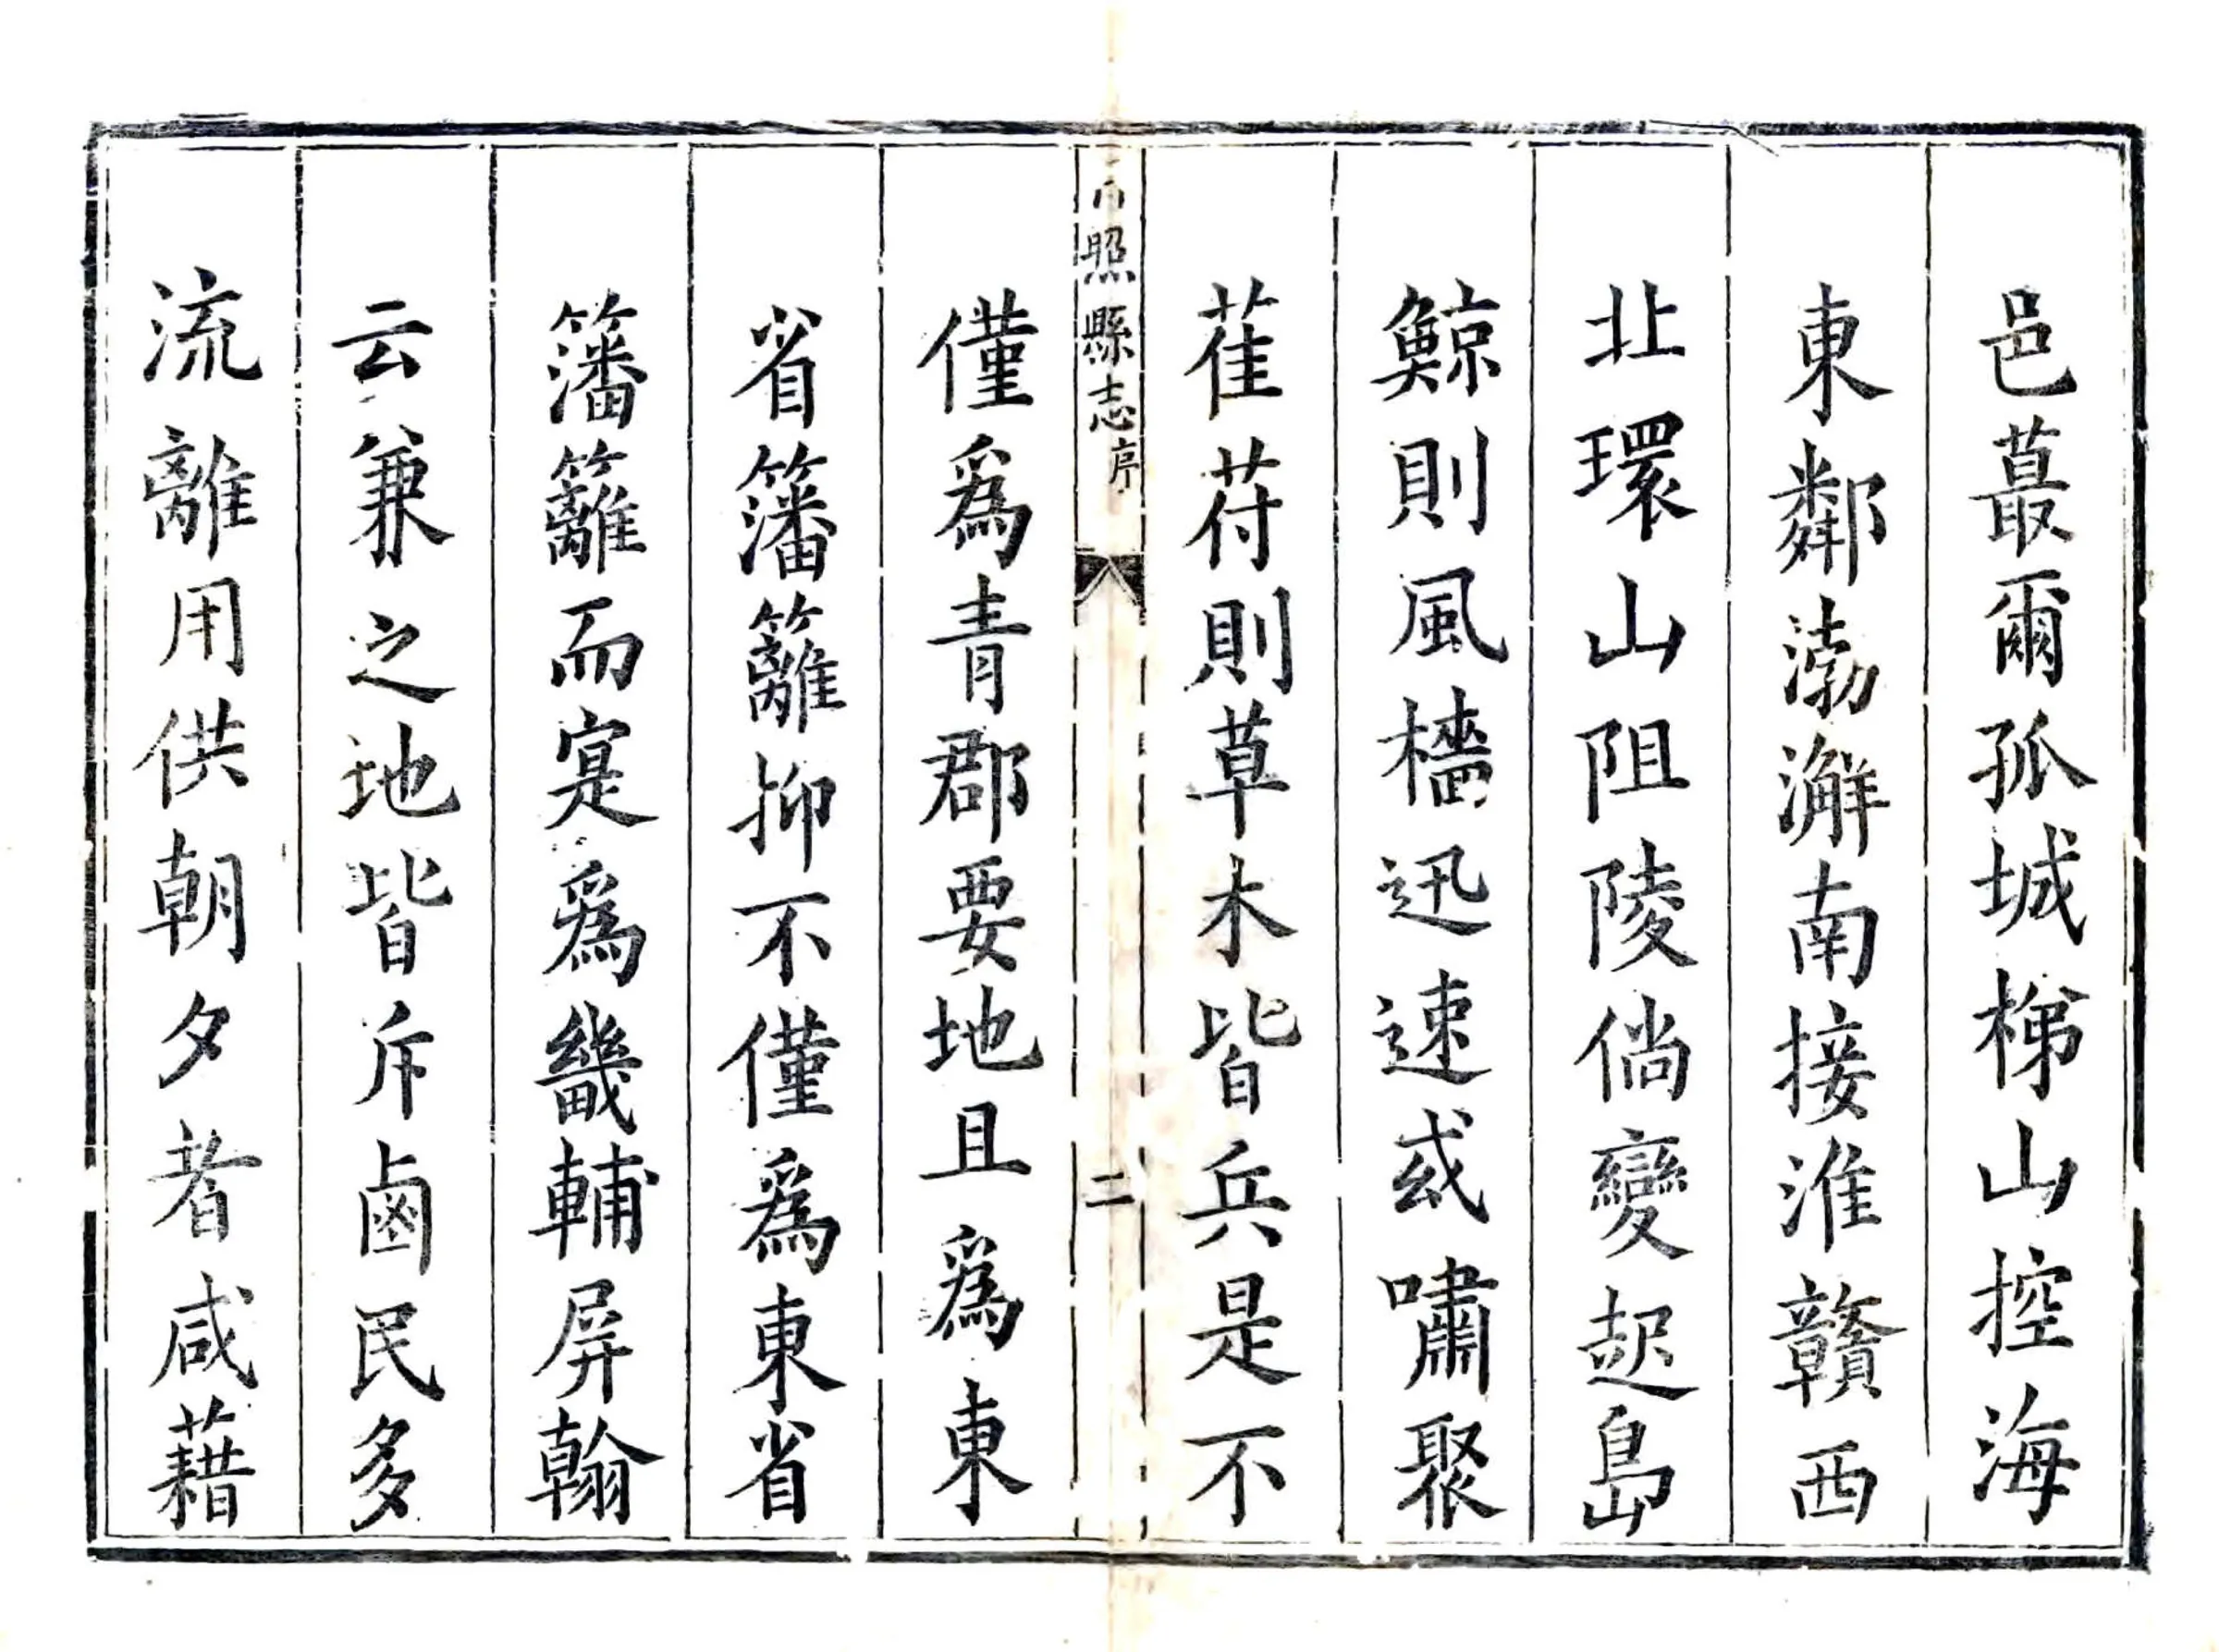 邑蕞爾孤城梯山控海
東鄰渤澥南接淮贛西
北環山阻陵倘變起島
鯨則風檣迅速或嘯聚
萑苻則草木皆兵是不
日照縣志序
二
僅爲青郡要地且爲東
省籓籬抑不僅爲東省
籓籬而寔爲畿輔屏翰
云兼之地皆斥鹵民多
流離用供朝夕者咸藉